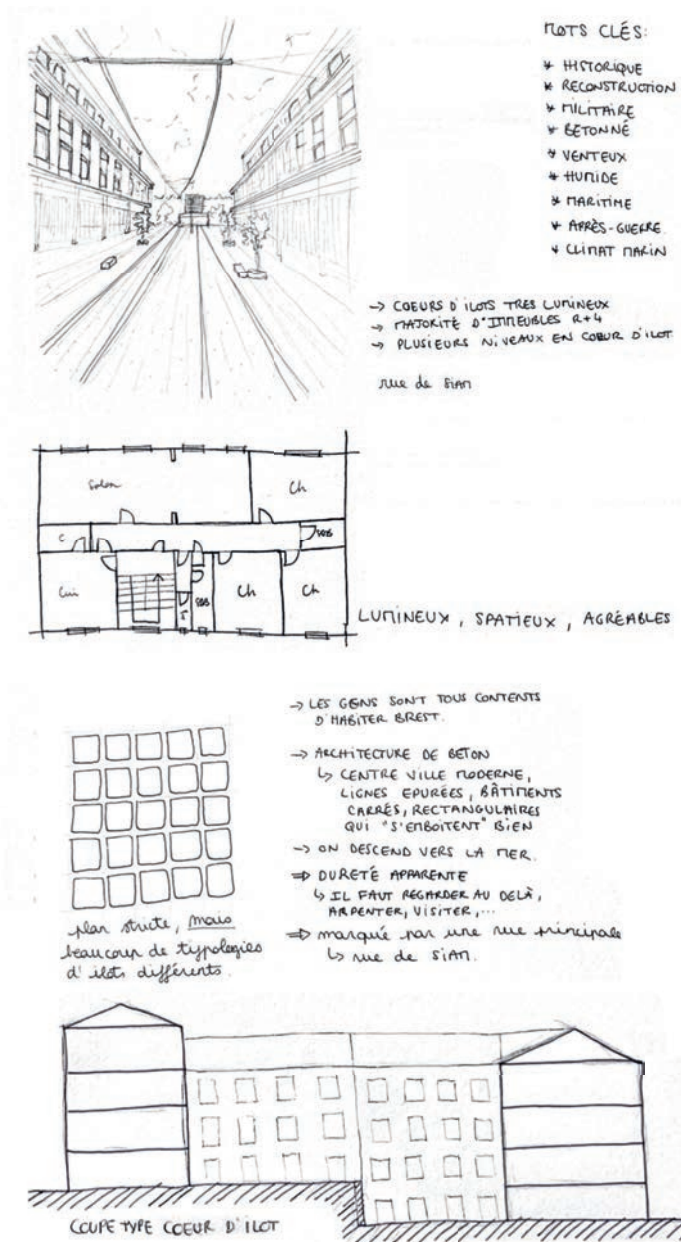 MOTS CLÉS:
* HISTORIQUE
* RECONSTRUCTION
* MILITAIRE
* BÉTONNÉ
* VENTEUX
* HUMIDE
* MARITIME
* APRÈS-GUERRE
* CLIMAT MARIN
→ COEURS D'ILOTS TRES LUMINEUX
→ MAJORITÉ D'IMMEUBLES R+4
→ PLUSIEURS NIVEAUX EN COEUR D'ILOT
rue de SIAM
Salon
Ch
C
SDB
Cui
SDB
Ch
Ch
LUMINEUX, SPATIEUX, AGRÉABLES
→ LES GENS SONT TOUS CONTENTS
D'HABITER BREST.
→ ARCHITECTURE DE BETON
↳ CENTRE VILLE MODERNE,
LIGNES EPURÉES, BÂTIMENTS
CARRÉS, RECTANGULAIRES
QUI "S'EMBOITENT" BIEN
→ ON DESCEND VERS LA MER.
⇒ DURETÉ APPARENTE
↳ IL FAUT REGARDER AU DELÀ,
ARPENTER, VISITER,...
⇒ marqué par une rue principale
↳ rue de SIAM.
plan stricte, mais
beaucoup de typologies
d'ilots différents.
COUPE TYPE COEUR D'ILOT